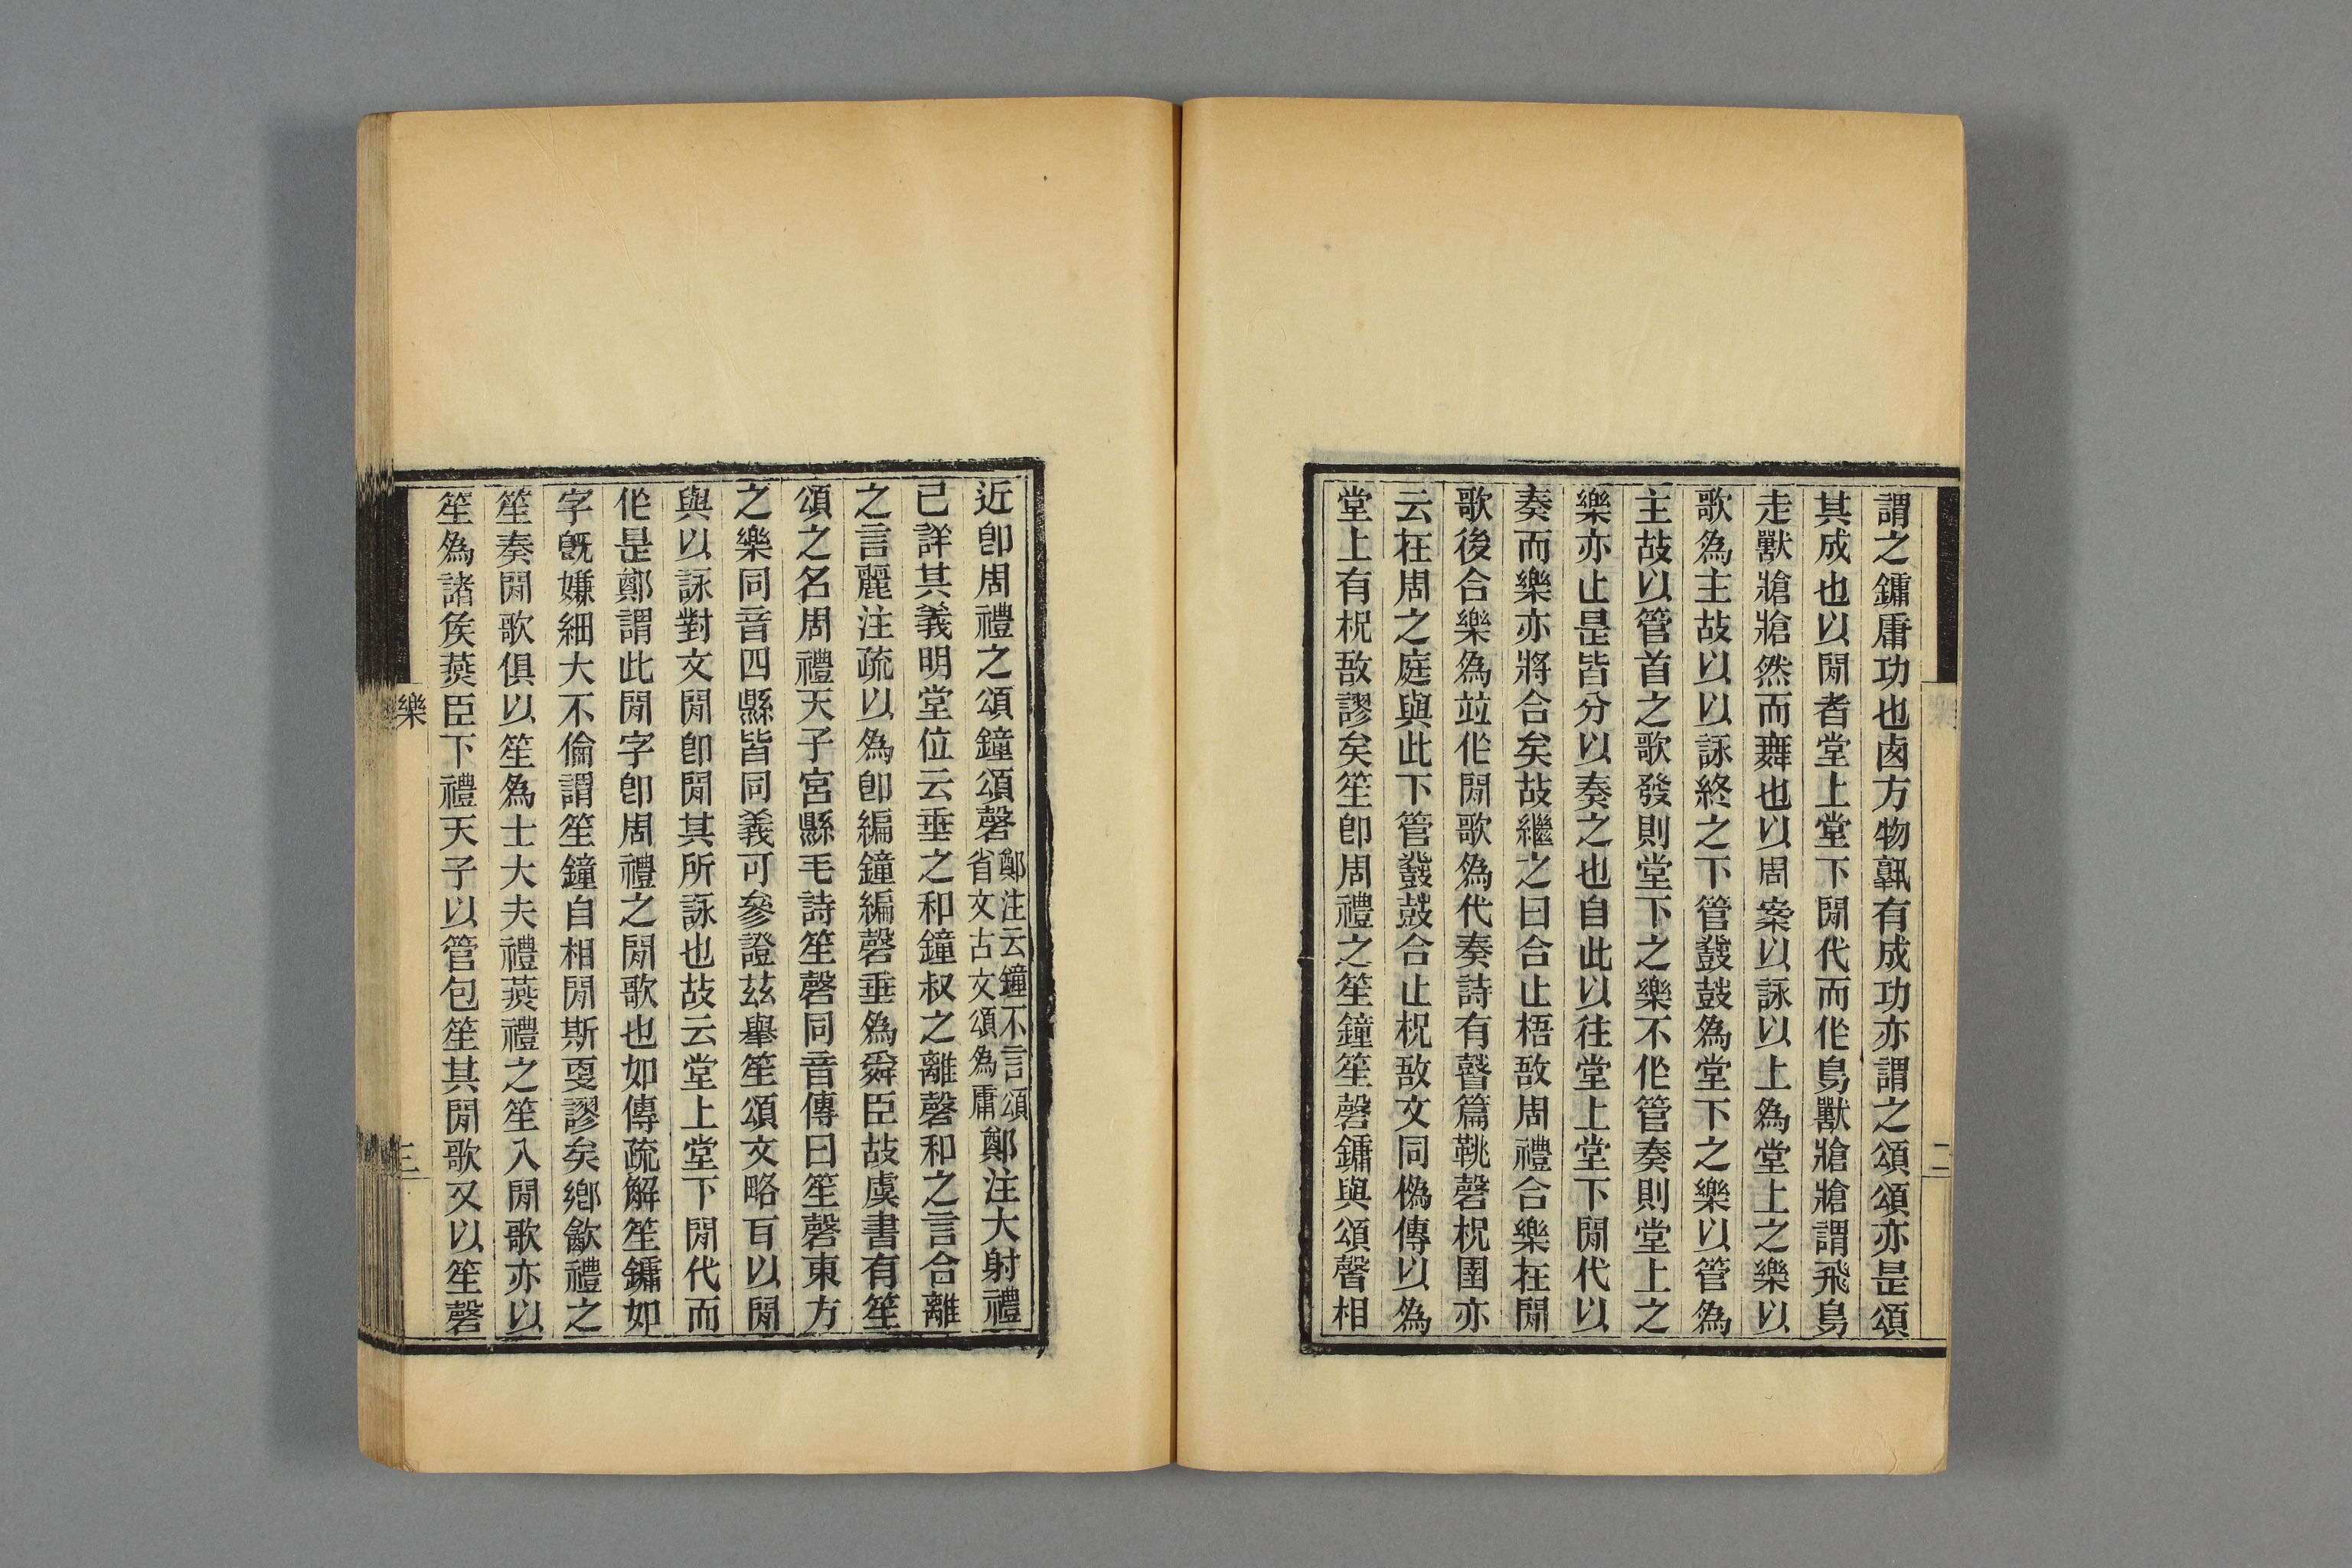 謂之鏞庸功也卤方物孰有成功亦謂之頌頌亦是頌
其成也以閒者堂上堂下閒代而作鳥獸牄牄謂飛鳥
走獸牄牄然而舞也以周案以詠以上為堂上之樂以
歌為主故以以詠終之下管鼗鼓為堂下之樂以管為
主故以管首之歌發則堂下之樂不作管奏則堂上之
樂亦止是皆分以奏之也自此以往堂上堂下閒代以
奏而樂亦將合矣故繼之曰合止梧敔周禮合樂在閒
歌後合樂為竝作閒歌為代奏詩有瞽篇鞉磬柷圉亦
云在周之庭與此下管鼗鼓合止柷敔文同僞傳以為
堂上有柷敔謬矣笙卽周禮之笙鐘笙磬鏞與頌聲相
二
近卽周禮之頌鐘頌磬鄭注云鐘不言頌省文古文頌為庸鄭注大射禮
已詳其義明堂位云垂之和鐘叔之離磬和之言合離
之言麗注疏以為卽編鐘編磬垂為舜臣故虞書有笙
頌之名周禮天子宮縣毛詩笙磬同音傳曰笙磬東方
之樂同音四縣皆同義可參證茲舉笙頌文略百以閒
與以詠對文閒卽閒其所詠也故云堂上堂下閒代而
作是鄭謂此閒字卽周禮之閒歌也如傳疏解笙鏞如
字旣嫌細大不倫謂笙鐘自相閒斯叓謬矣鄉飮禮之
笙奏閒歌俱以笙為士大夫禮燕禮之笙入閒歌亦以
笙為諸矦燕臣下禮天子以管包笙其閒歌又以笙磬
樂
三